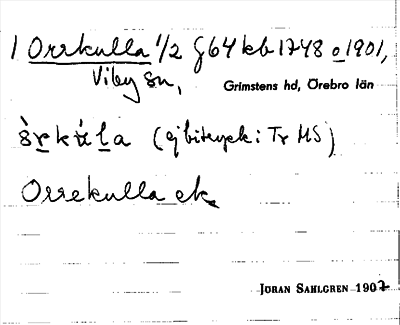 1 Orrkulla 1/2 g 64 kb 1748 o 1901,
Viby sn,
Grimstens hd, Örebro län
(ej bitryck: Tr MS)
Orrekulla ek
JÖRAN SAHLGREN 1907